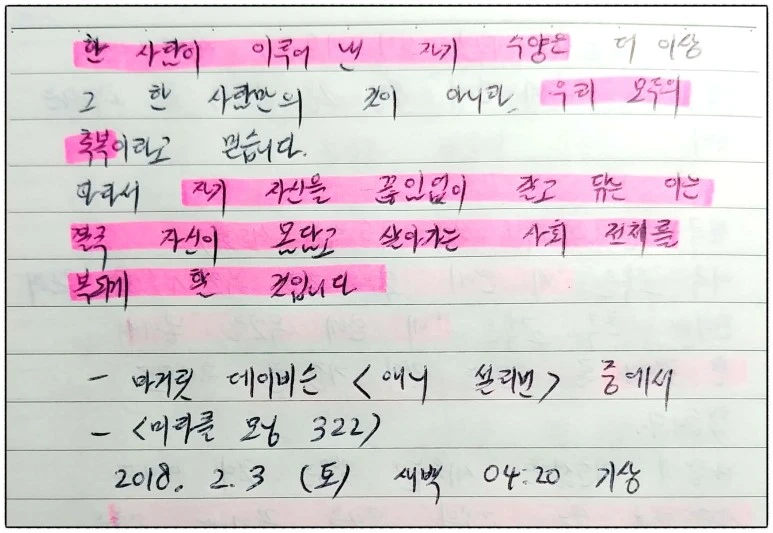 한 사람이 이루어 낸 자기 수양은 더 이상
그 한 사람만의 것이 아니라, 우리 모두의
축복이라고 믿습니다.
따라서 자기 자신을 끊임없이 갈고 닦는 이는
결국 자신이 몸담고 살아가는 사회 전체를
복되게 할 것입니다
- 마거릿 데이비슨 <애니 설리번> 중에서
- <미라클 모닝 322>
2018. 2. 3 (토) 새벽 04:20 기상